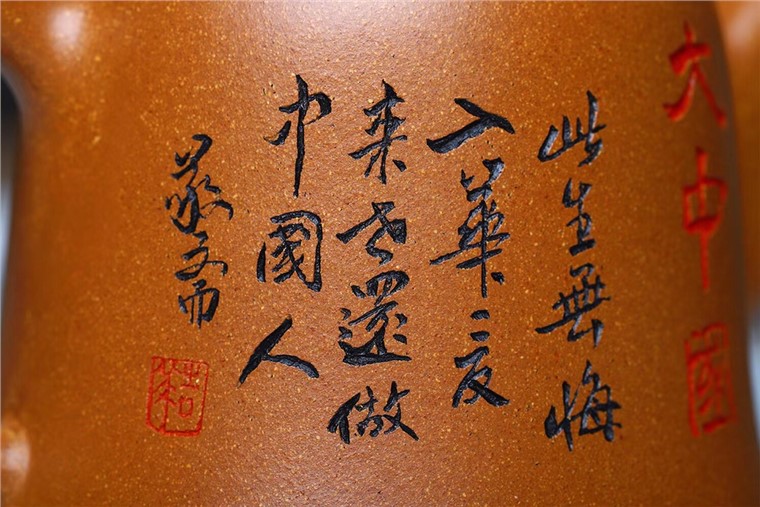 大中國
此生無悔
入華夏
来世還做
中國人